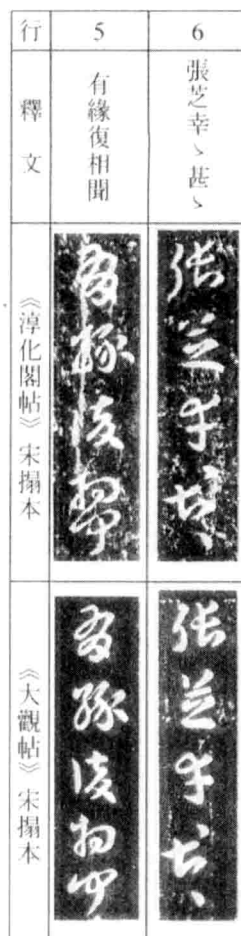 行
5
6
釋文
有緣復相聞
張芝幸ゝ甚ゝ
《淳化閣帖》宋搨本
有緣復相聞
張芝幸ゝ甚ゝ
《大觀帖》宋搨本
有緣復相聞
張芝幸ゝ甚ゝ